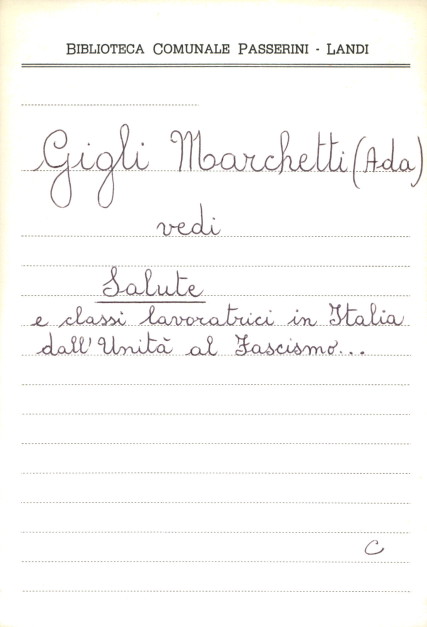 BIBLIOTECA COMUNALE PASSERINI - LANDI
Gigli Marchetti (Ada)
vedi
Salute
e classi lavoratrici in Italia
dall'Unità al Fascismo...
C